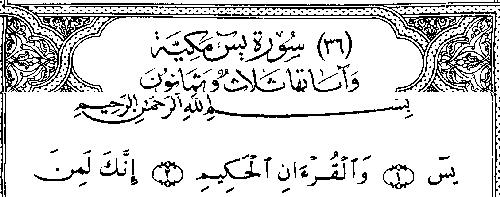 (٣٦) سُورَةُ يسٓ مَكِيَّة
وَآيَاتُهَا ثَلَاثٌ وَثَمَانُونَ
بِسْمِ اللَّهِ الرَّحْمَٰنِ الرَّحِيمِ
يسٓ ١ وَٱلْقُرْءَانِ ٱلْحَكِيمِ ٢ إِنَّكَ لَمِنَ